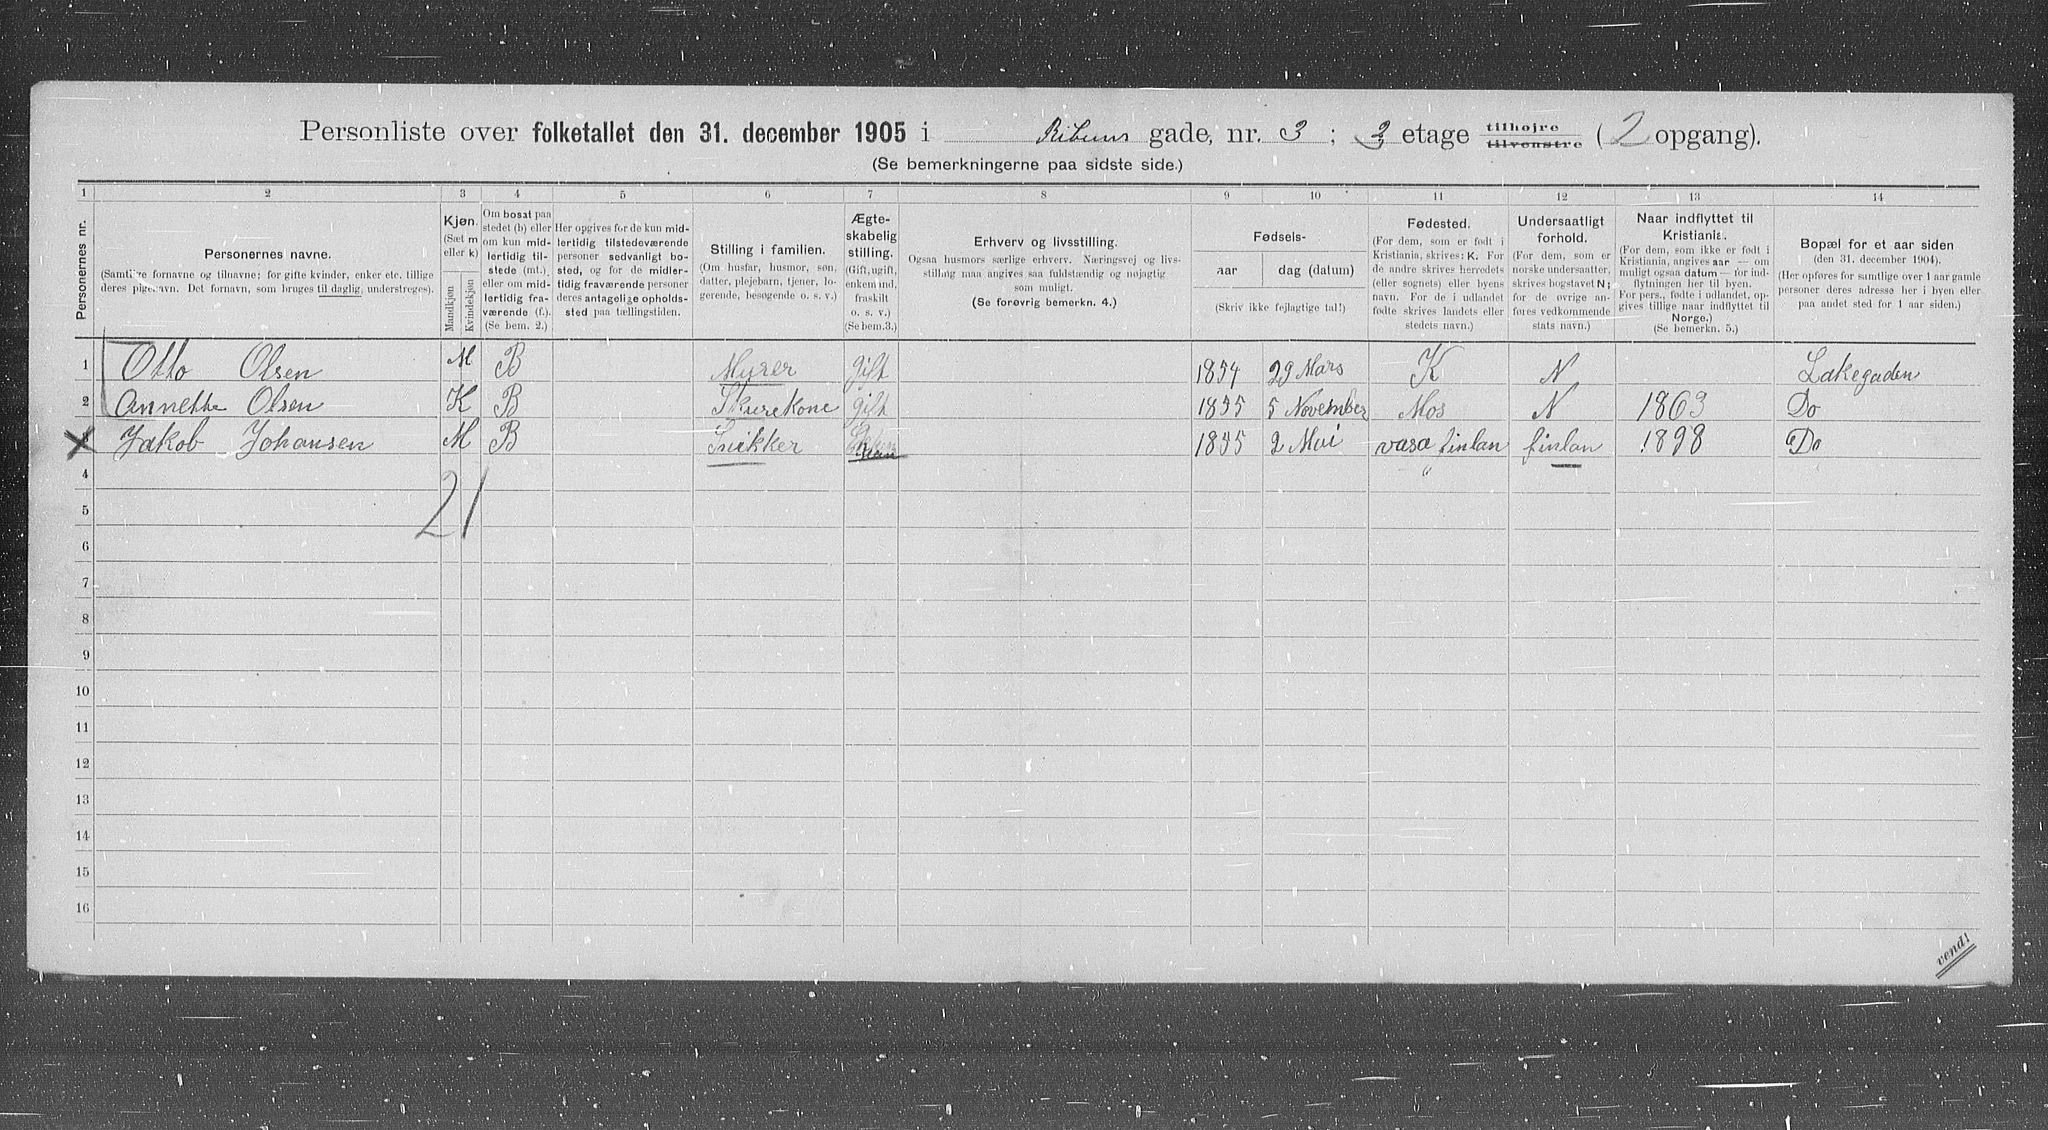 Personliste over folketallet den 31. december 1905 i Ribuns gade, nr. 3 ; 3 etage tilhøjre tilvenstre ( 2 opgang).
(Se bemerkningerne paa sidste side.)
1 2 3 4 5 6 7 8 9 10 11 12 13 14
Personernes nr.
Personernes navne.
(Samtlige fornavne og tilnavne; for gifte kvinder, enker etc. tillige
deres pigenavn. Det fornavn, som bruges til daglig, understreges).
Kjøn.
(Sæt m
eller k)
Mandkjøn
Kvindekjøn
Om bosat paa
stedet (b) eller
om kun mid-
lertidig til-
stede (mt.)
eller om mid-
lertidig fra-
værende (f.).
(Se bem. 2.)
Her opgives for de kun mid-
lertidig tilstedeværende
personer sedvanligt bo-
sted, og for de midler-
tidig fraværende personer
deres antagelige opholds-
sted paa tællingstiden.
Stilling i familien.
(Om husfar, husmor, søn,
datter, plejebarn, tjener, lo-
gerende, besøgende o. s. v.)
Ægte-
skabelig
stilling.
(Gift, ugift,
enkem ind,
fraskilt
o. s. v.)
(Se bem.3.)
Erhverv og livsstilling.
Ogsaa husmors særlige erhverv. Næringsvej og livs-
stilling maa angives saa fuldstændig og nøjagtig
som muligt.
(Se forøvrig bemerkn. 4.)
Fødsels-
aar dag (datum)
(Skriv ikke fejlagtige tal!)
Fødested.
(For dem, som er født i
Kristiania, skrives: K. For
de andre skrives herredets
(eller sognets) eller byens
navn. For de i udlandet
fødte skrives landets eller
stedets navn.)
Undersaatligt
forhold.
(For dem, som er
norske undersaatter,
skrives bogstavet N;
for de øvrige an-
føres vedkommende
stats navn.)
Naar indflyttet til
Kristiania.
(For dem, som ikke er født i
Kristiania, angives aar — om
muligt ogsaa datum — for ind-
flytningen her til byen.
For pers., fødte i udlandet, op-
gives tillige naar indflyttet til
Norge.)
(Se bemerkn. 5.)
Bopæl for et aar siden
(den 31. december 1904).
(Her opføres for samtlige over 1 aar gamle
personer deres adresse her i byen eller
paa andet sted for 1 aar siden.)
1 Otto Olsen M B Murer gift 1854 29 Mars K N Lakegaden
2 Annette Olsen K B Skurekone gift 1855 5 November Mos N 1863 Do
3 Jakob Johansen M B Snikker 1855 2 Mai vasa finlan finlan 1898 Do
4
21
5
6
7
8
9
10
11
12
13
14
15
16
vend!